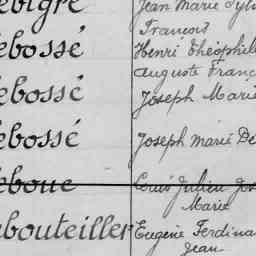 ebigre Jean Marie Sylv
François
ebossé Henri Théophile
Auguste Franç
ebossé Joseph Marie
ebossé Joseph Marie De
eboue Louis Julien Jos
Marie
bouteiller Eugène Ferdina
Jean